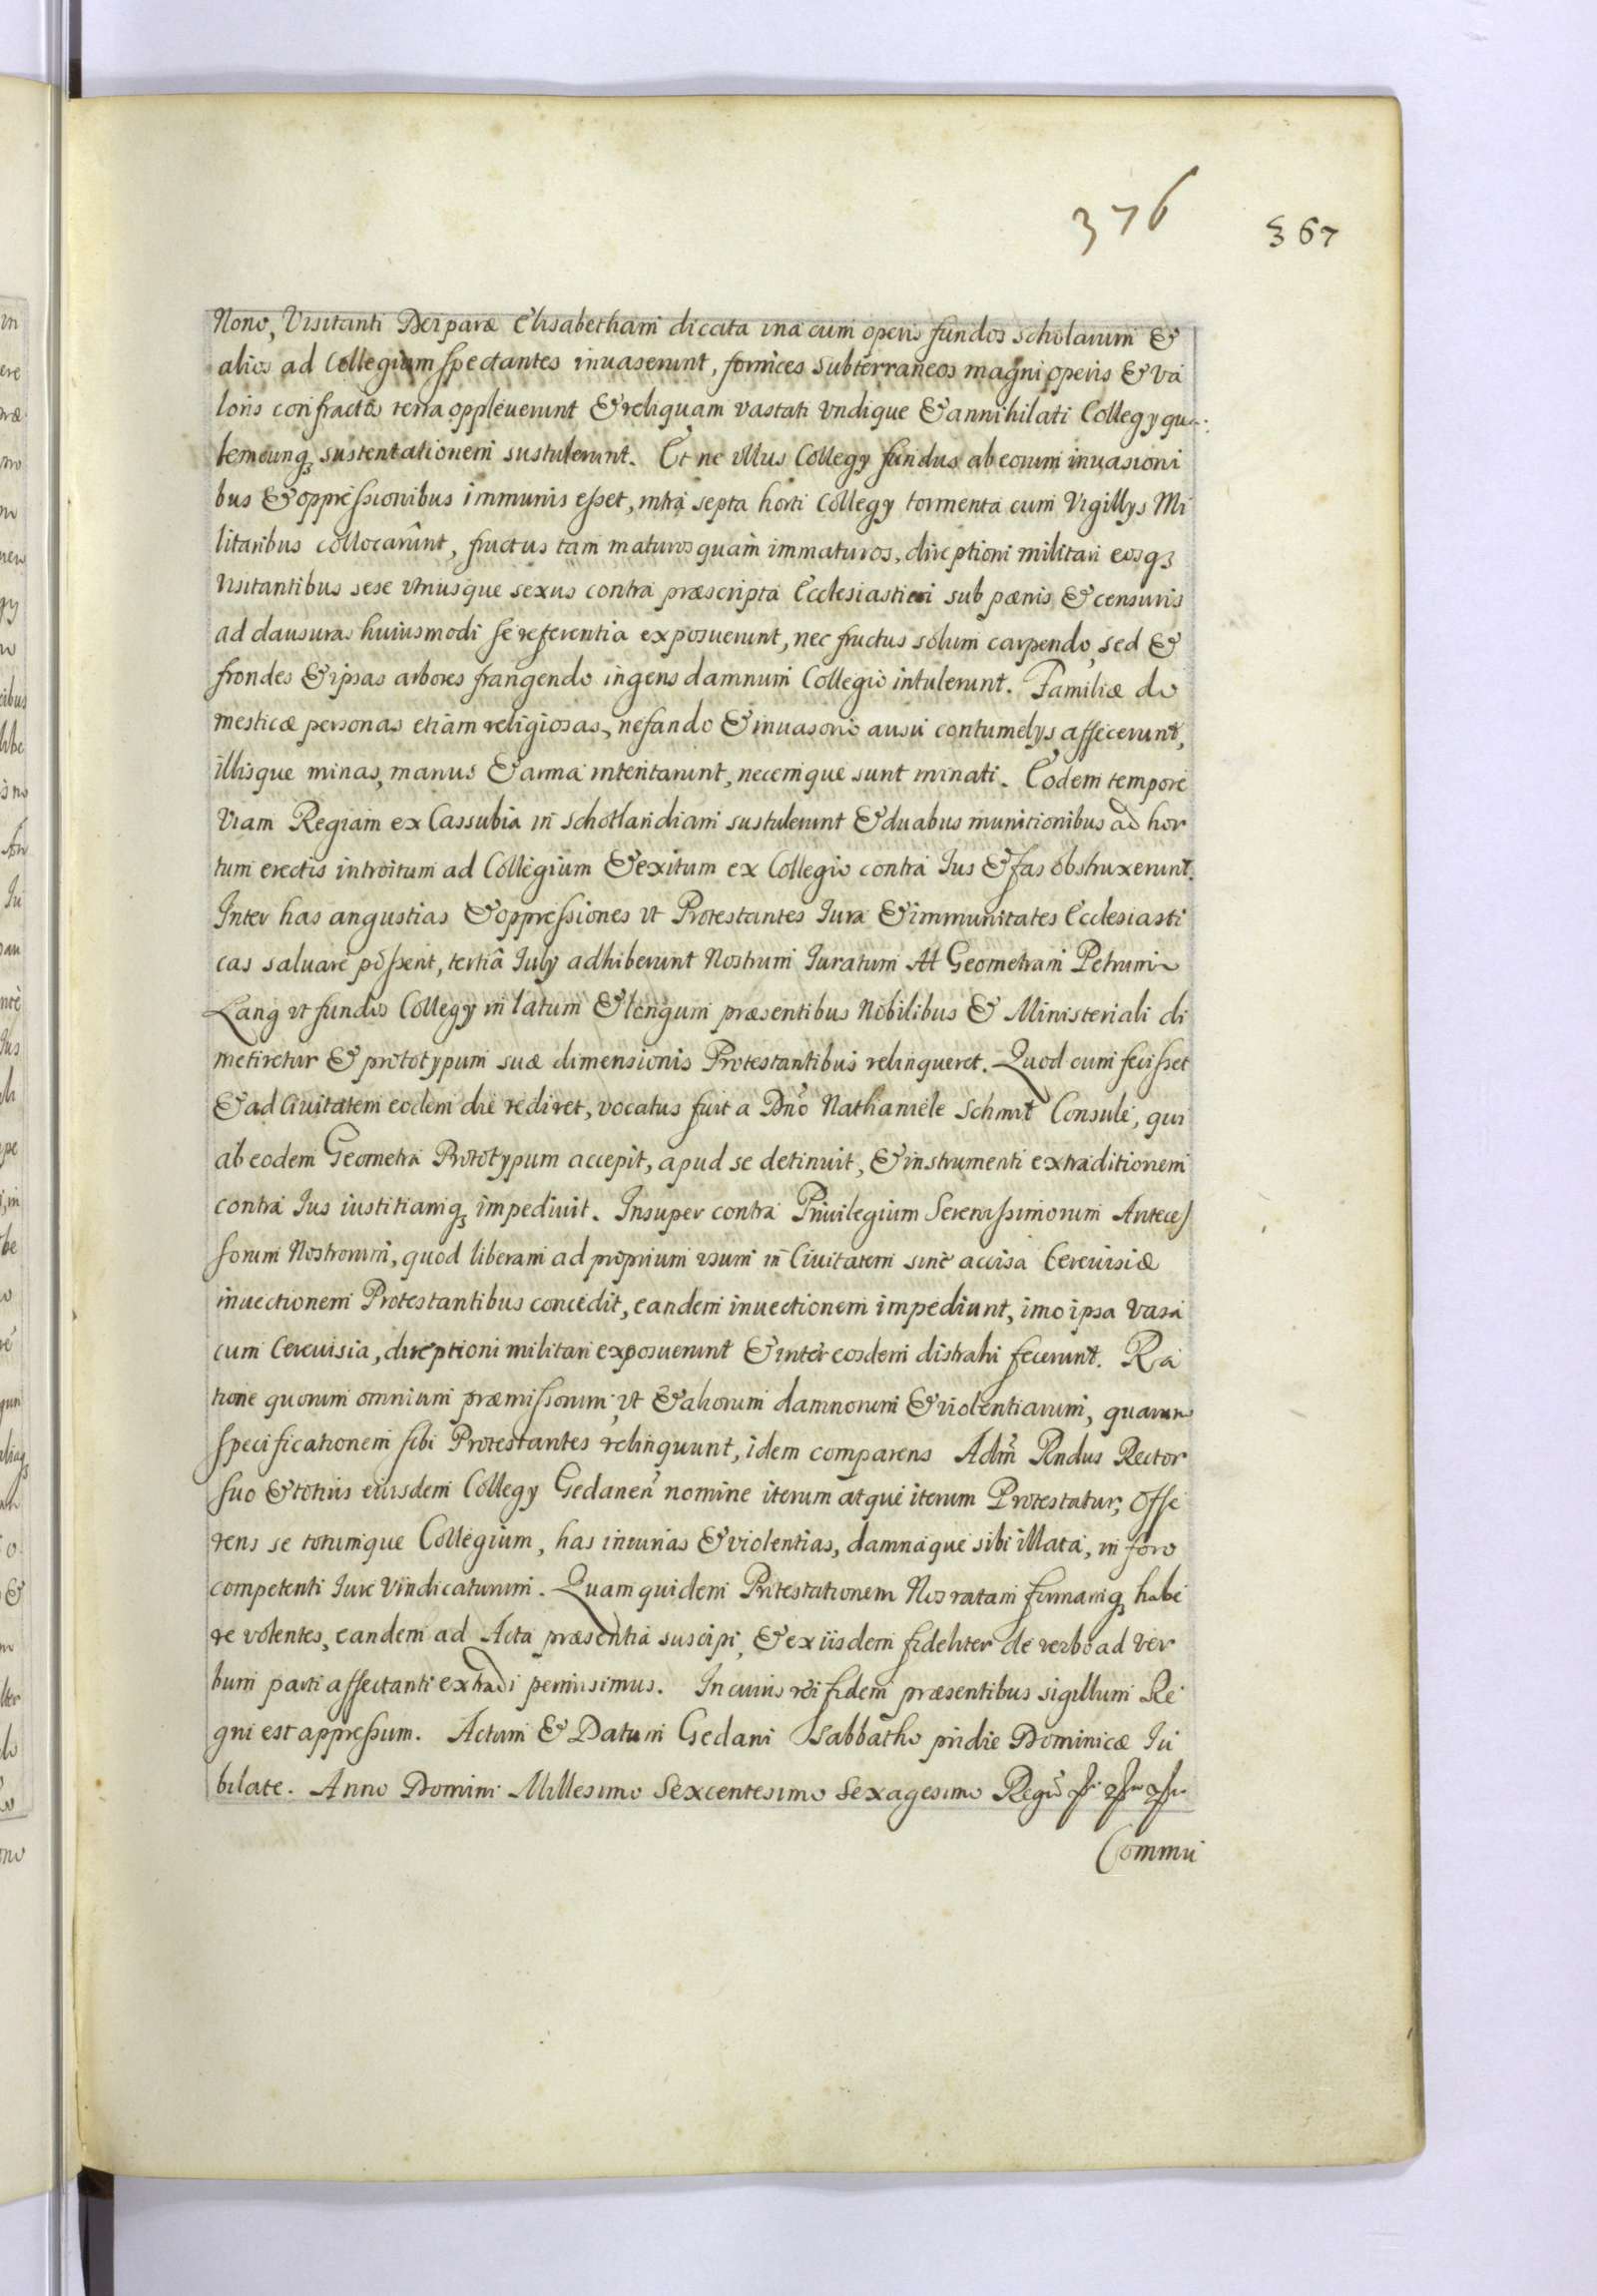 376
367
Nono, Visitanti Deiparæ Elisabetham dicata una cum operis fundos scholarum &
alios ad Collegium spectantes inuaserunt, fornices subterraneos magni operis & va
loris confractos terra oppleuerunt & reliquam vastati vndique & annihilati Collegy qua
lemcunq; sustentationem sustulerunt. Et ne vllus Collegy fundus ab eorum inuasioni
bus & oppressionibus immunis esset, intra septa horti Collegy tormenta cum Vigillys Mi
litaribus collocarunt, fructus tam maturos quam immaturos, direptioni militari eosq;
visitantibus sese vtriusque sexus contra præscripta Ecclesiastici sub pænis & censuris
ad clausuras huiusmodi se referentia exposuerunt, nec fructus solum carpendo, sed &
frondes & ipsas arbores frangendo ingens damnum Collegio intulerunt. Familiæ do
mesticæ personas etiam religiosas, nefando & inuasorio ausu contumelys affecerunt,
illisque minas, manus & arma intentarunt, necemque sunt minati. Eodem tempore
Viam Regiam ex Cassubia in Schotlandiam sustulerunt & duabus munitionibus ad hor
tum erectis introitum ad Collegium & exitum ex Collegio contra Ius & fas obstruxerunt.
Inter has angustias & oppressiones vt Protestantes Iura & immunitates Ecclesiasti
cas saluare possent, tertiâ July adhiberunt Nostrum Iuratum At Geometram Petrum
Lang vt fundos Collegy in latum & longum præsentibus Nobilibus & Ministeriali di
metiretur & prototypum suæ dimensionis Protestantibus relinqueret. Quod cum fecisset
& ad Ciuitatem eodem die rediret, vocatus fuit a Dno Nathaniele Schmit Consule, qui
ab eodem Geometra Prototypum accepit, apud se detinuit, & instrumenti extraditionem
contra Ius iustitiamq; impediuit. Insuper contra Priuilegium Serenissimorum Anteces
sorum Nostrorum, quod liberam ad proprium vsum in Ciuitatem sine accisa Cereuisiæ
inuectionem Protestantibus concedit, eandem inuectionem impediunt, imo ipsa vasa
cum Cereuisia, direptioni militari exposuerunt & inter eosdem distrahi fecerunt. Ra
tione quorum omnium præmissorum, vt & aliorum damnorum & violentiarum, quarum
specificationem sibi Protestantes relinquunt, idem comparens Adm Rndus Rector
suo & totius eiusdem Collegy Gedanen nomine iterum atque iterum Protestatur, offe
rens se totumque Collegium, has iniurias & violentias, damnaque sibi illata, in foro
competenti Iure vindicaturum. Quam quidem Protestationem Nos ratam firmamq; habe
re volentes, eandem ad Acta præsentia suscipi, & ex iisdem fideliter de verbo ad ver
bum parti affectanti extradi permisimus. In cuius rei fidem præsentibus sigillum Re
gni est appressum. Actum & Datum Gedani Sabbatho pridie Dominicæ Iu
bilate. Anno Domini Millesimo Sexcentesimo Sexagesimo Regn
Commu